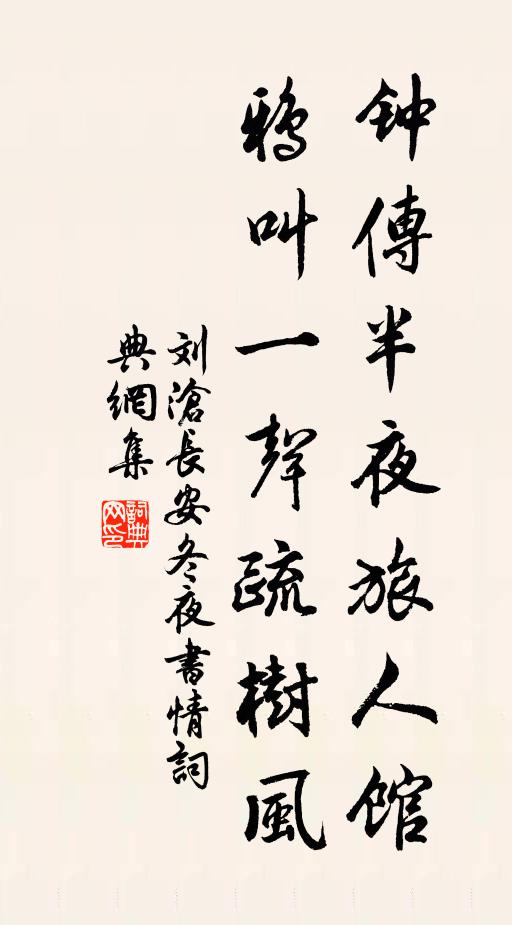 钟傳半夜旅人館
鴉叫一聲疏樹風
刘滄長安冬夜書情詞
典網集
詞典网印